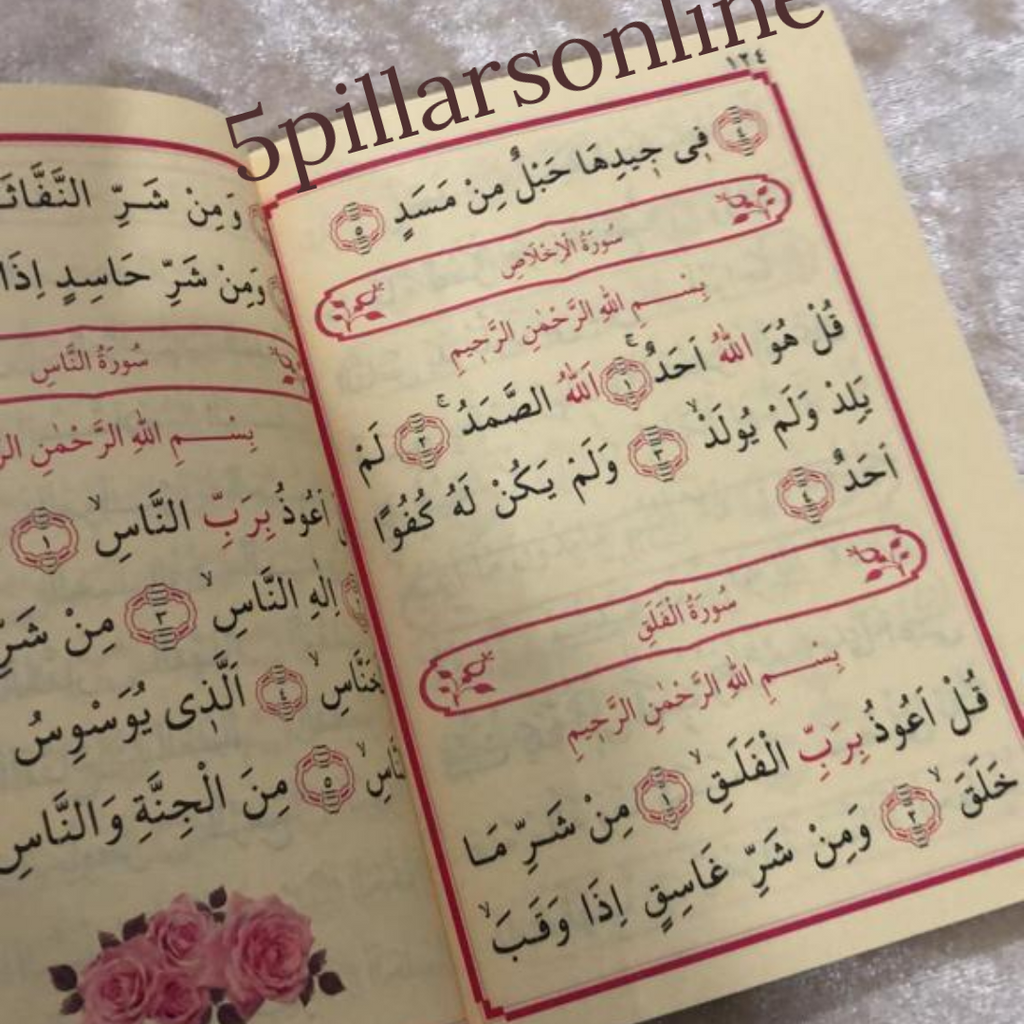 5pillarsonline
١٢٤
٤ فٖى جٖيدِهَا حَبْلٌ مِنْ مَسَدٍ ٥
سُورَةُ الْاِخْلَاصِ
بِسْــــمِ اللهِ الرَّحْمٰنِ الرَّحٖيمِ
قُلْ هُوَ اللّٰهُ اَحَدٌۚ ١ اَللّٰهُ الصَّمَدُۚ ٢ لَمْ
يَلِدْ وَلَمْ يُولَدْۙ ٣ وَلَمْ يَكُنْ لَهُ كُفُوًا
اَحَدٌ ٤
سُورَةُ الْفَلَقِ
بِسْــــمِ اللهِ الرَّحْمٰنِ الرَّحٖيمِ
قُلْ اَعُوذُ بِرَبِّ الْفَلَقِۙ ١ مِنْ شَرِّ مَا
خَلَقَۙ ٢ وَمِنْ شَرِّ غَاسِقٍ اِذَا وَقَبَۙ
وَمِنْ شَرِّ
وَمِنْ شَرِّ حَاسِدٍ اِذَا
سُورَةُ النَّاسِ
بِسْــــمِ اللهِ الرَّحْمٰنِ
اَعُوذُ بِرَبِّ النَّاسِۙ ١
اِلٰهِ النَّاسِۙ ٣ مِنْ شَرِّ
٤ اَلَّذٖى يُوَسْوِسُ
٥ مِنَ الْجِنَّةِ وَالنَّاسِ